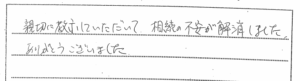 親切に教すしていただいて 相続の不安が解消しました。
ありがとうございました